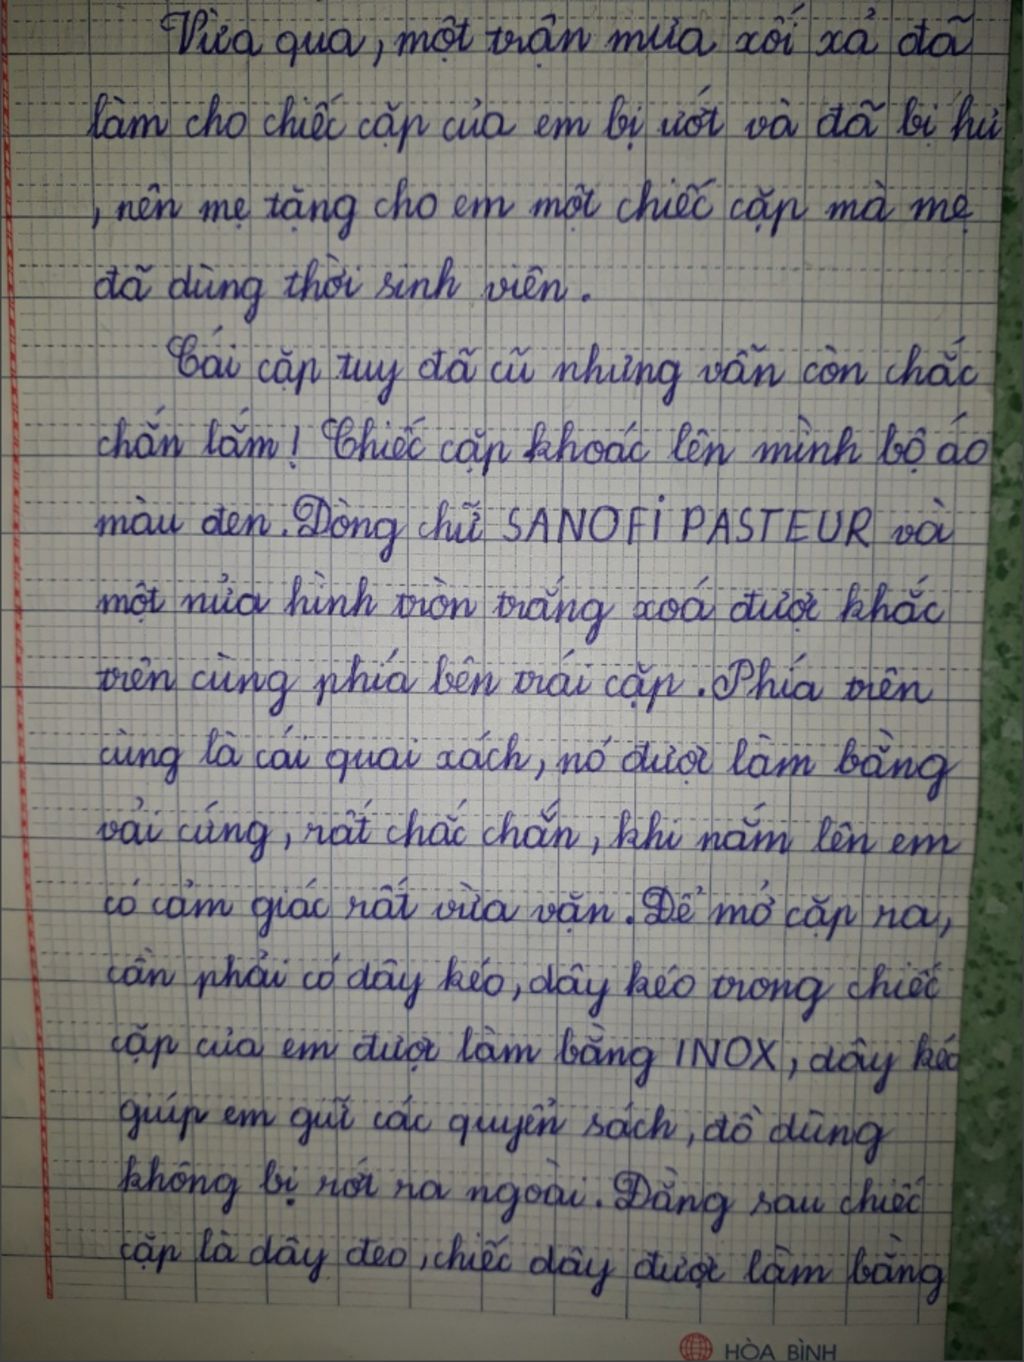 Vừa qua, một trận mưa xối xả đã
làm cho chiếc cặp của em bị ướt và đã bị hư
, nên mẹ tặng cho em một chiếc cặp mà mẹ
đã dùng thời sinh viên.
Cái cặp tuy đã cũ nhưng vẫn còn chắc
chắn lắm! Chiếc cặp khoác lên mình bộ áo
màu đen. Dòng chữ SANOFI PASTEUR và
một nửa hình tròn trắng xoá được khắc
trên cùng phía bên trái cặp. Phía trên
cùng là cái quai xách, nó được làm bằng
vải cứng, rất chắc chắn, khi nắm lên em
có cảm giác rất vừa vặn. Để mở cặp ra,
cần phải có dây kéo, dây kéo trong chiếc
cặp của em được làm bằng INOX, dây kéo
giúp em giữ các quyển sách, đồ dùng
không bị rớt ra ngoài. Đằng sau chiếc
cặp là dây đeo, chiếc dây được làm bằng
HÒA BÌNH